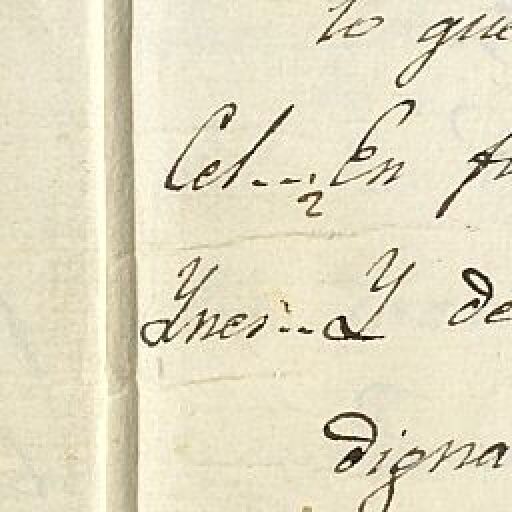 lo que
Cel... En fu
Ynes... Y de
digna